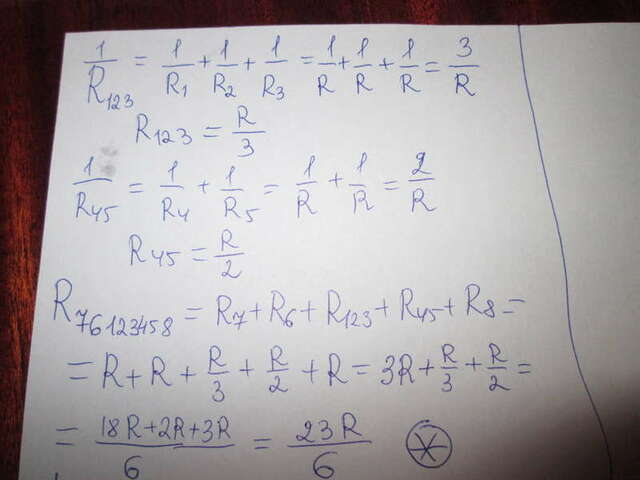 1/R₁₂₃ = 1/R₁ + 1/R₂ + 1/R₃ = 1/R + 1/R + 1/R = 3/R
R₁₂₃ = R/3
1/R₄₅ = 1/R₄ + 1/R₅ = 1/R + 1/R = 2/R
R₄₅ = R/2
R₇₆₁₂₃₄₅₈ = R₇ + R₆ + R₁₂₃ + R₄₅ + R₈ =
= R + R + R/3 + R/2 + R = 3R + R/3 + R/2 =
= (18R + 2R + 3R)/6 = 23R/6 ⊛